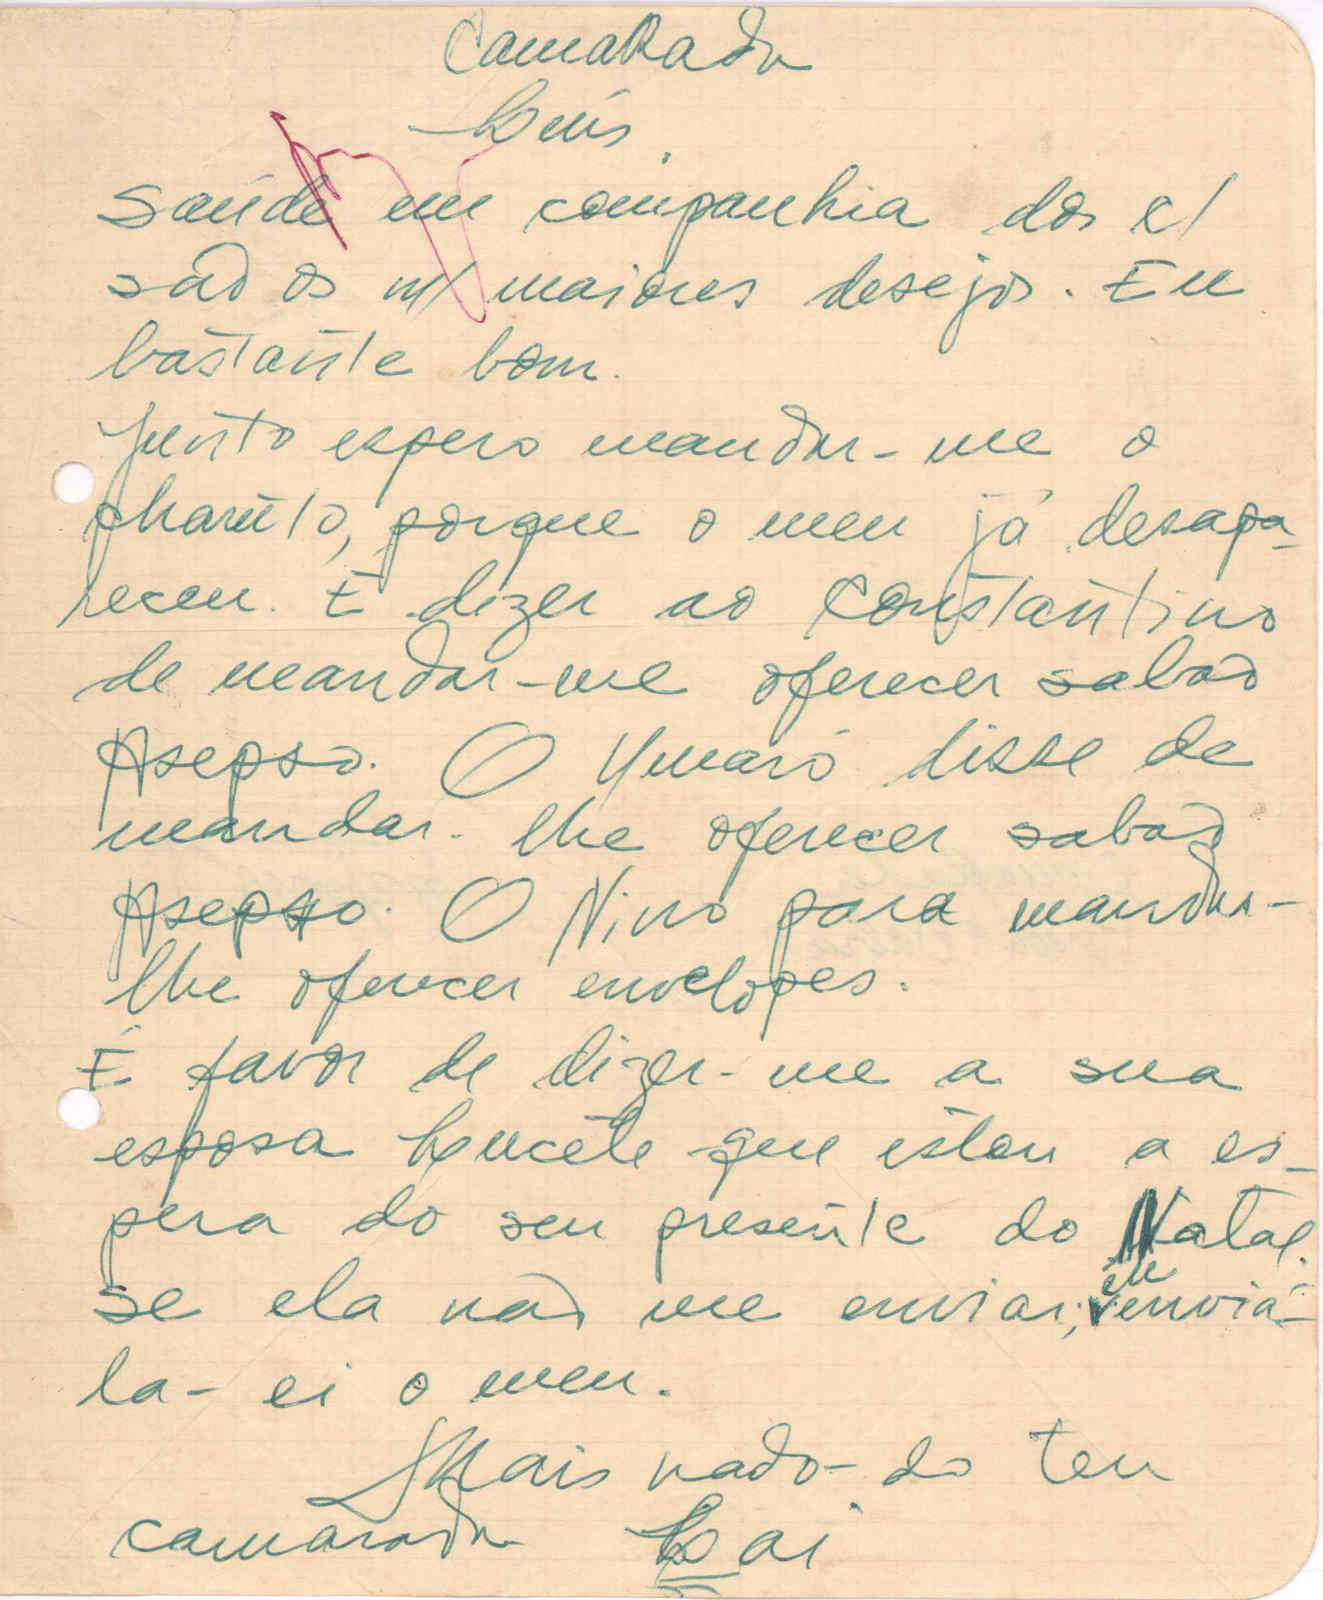 Camarada
Luís,
Saúde em companhia dos c/
são os m/ maiores desejos. Eu
bastante bom.
Junto espero mandar-me o
charuto, porque o meu já desapa-
receu. E dizer ao Constantino
de mandar-me oferecer sabão
Asepso. O Umaró disse de
mandar-lhe oferecer sabão
Asepso. O Nino para mandar-
lhe oferecer envelopes.
É favor de dizer-me a sua
esposa Lucete que estou a es-
pera do seu presente do Natal.
se ela não me enviar, eu enviá-
la-ei o meu.
Mais nado- do teu
camarada Lai